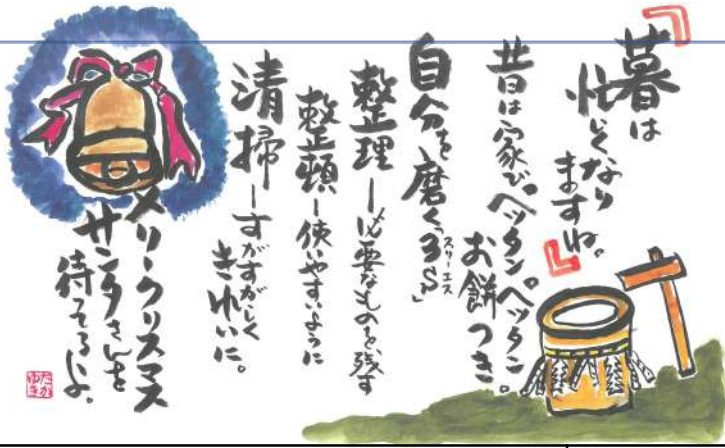 『暮は
忙しくなり
ますね。』
昔は家でペッタンペッタン
お餅つき。
自分を磨く「3S」
スリーエス
整理ー必要なものを残す
整頓ー使いやすいように
清掃ーすがすがしく
きれいに。
メリークリスマス
サンタさんを
待ってるよ。